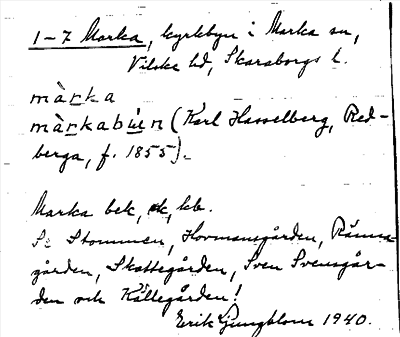 1-7 Marka, kyrkbyn i Marka sn,
Vilske hd, Skaraborgs l.
màrka
màrkabýen (Karl Hasselberg, Red-
berga, f. 1855).
Marka bek, ek, kb.
Se Stommen, Hovmansgården, Ränna-
gården, Skattegården, Sven Svensgår-
den och Källegården!
Erik Ljungblom 1940.